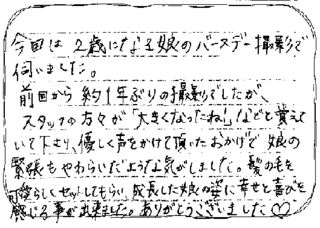 今回は2歳になる娘のバースデー撮影で
伺いました。
前回から約1年ぶりの撮影でしたが、
スタッフの方々が「大きくなったね!」などと覚えて
いて下さり、優しく声をかけて頂いたおかげで娘の
緊張もやわらいだような気がしました。髪の毛を
可愛らしくセットしてもらい、成長した娘の姿に幸せと喜びを
感じる事が出来ました。ありがとうございました♡